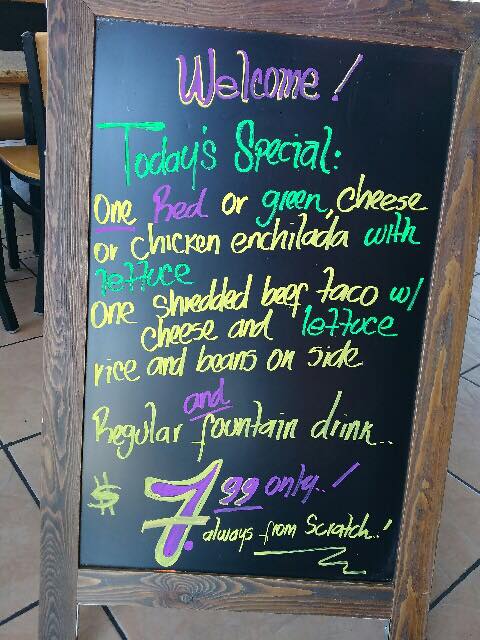 Welcome!
Today's Special:
One Red or green, cheese
or chicken enchilada with
lettuce
One shredded beef taco w/
cheese and lettuce
rice and beans on side
and
Regular fountain drink..
$ 7.99 only..!
always from Scratch..!